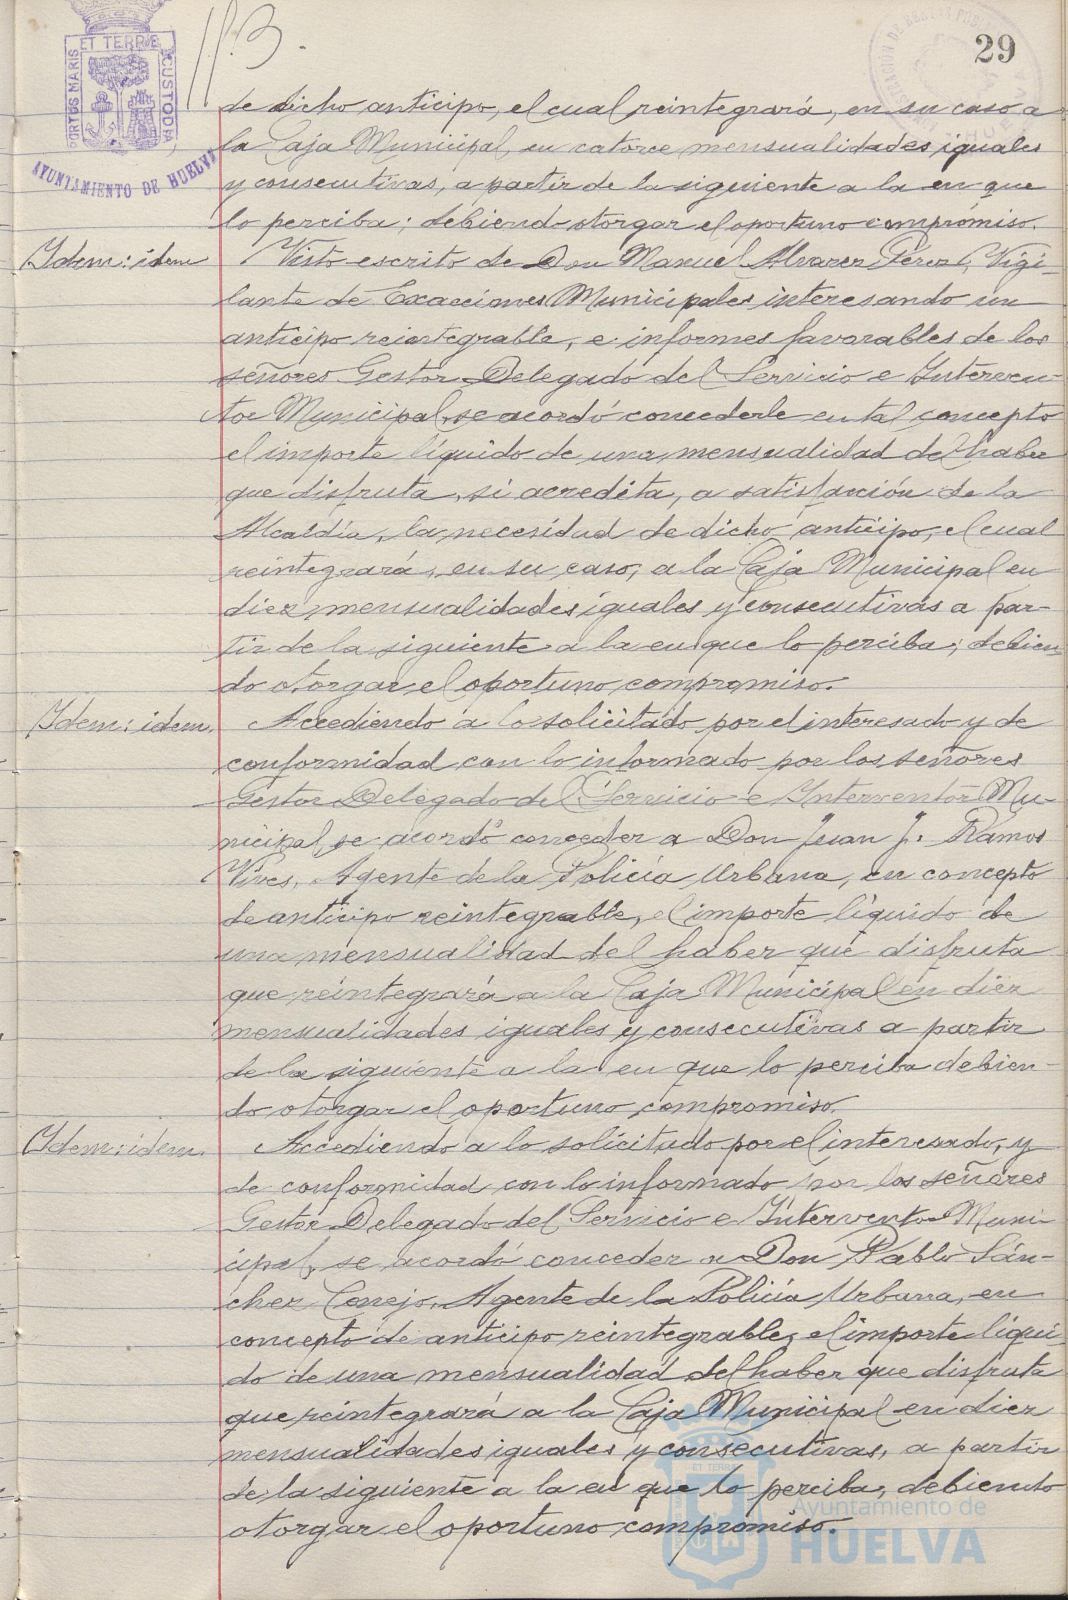 29
ET TERRÆ
PORTUS MARIS
CUSTODIA
AYUNTAMIENTO DE HUELVA
de dicho anticipo, el cual reintegrará, en su caso a
la Caja Municipal en catorce mensualidades iguales
y consecutivas, a partir de la siguiente a la en que
lo perciba; debiendo otorgar el oportuno compromiso.
Idem: idem
Visto escrito de Don Manuel Alvarez Pérez, Vigi-
lante de Exacciones Municipales interesando un
anticipo reintegrable, e informes favorables de los
señores Gestor Delegado del Servicio e Interven-
tor Municipal, se acordó concederle en tal concepto
el importe líquido de una mensualidad del haber
que disfruta, si acredita, a satisfacción de la
Alcaldía, la necesidad de dicho anticipo, el cual
reintegrará, en su caso, a la Caja Municipal en
diez mensualidades iguales y consecutivas a par-
tir de la siguiente a la en que lo perciba; debien-
do otorgar el oportuno compromiso.
Idem: idem.
Accediendo a lo solicitado por el interesado y de
conformidad con lo informado por los señores
Gestor Delegado del Servicio e Interventor Mu-
nicipal, se acordó conceder a Don Juan J. Ramos
Vives, Agente de la Policía Urbana, en concepto
de anticipo reintegrable, el importe líquido de
una mensualidad del haber que disfruta
que reintegrará a la Caja Municipal en diez
mensualidades iguales y consecutivas a partir
de la siguiente a la en que lo perciba debien-
do otorgar el oportuno compromiso.
Idem: idem.
Accediendo a lo solicitado por el interesado, y
de conformidad con lo informado por los señores
Gestor Delegado del Servicio e Interventor Muni-
cipal, se acordó conceder a Don Pablo Sán-
chez Conejo, Agente de la Policía Urbana, en
concepto de anticipo reintegrable, el importe líqui-
do de una mensualidad del haber que disfruta
que reintegrará a la Caja Municipal en diez
mensualidades iguales y consecutivas, a partir
de la siguiente a la en que lo perciba, debiendo
otorgar el oportuno compromiso.
Ayuntamiento de
HUELVA